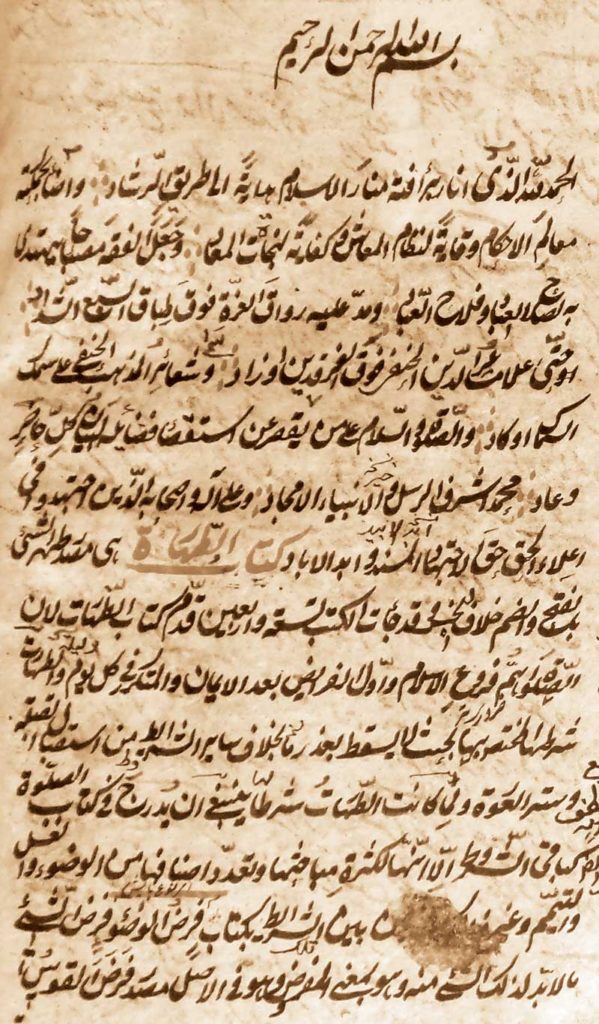 بسم الله الرحمن الرحيم
الحمد لله الذى انار برأفته منار الاسلام هداية الى طريق الرشاد واضاء بحكمته
معالم الاحكام وقاية لنظام المعاش وكفاية لنجاة المعاد وجعل الفقه مصباحا يهتدى
به لصلاح العباد وفلاح العباد ومد عليه رواق العزة فوق طباق السبع الشداد
علامات الدين الحنيف فوق الفرقدين او زاد وشعائر المذهب الحنفى على سمك
السماك او كاد والصلاة والسلام على من يقصر عن استقصاء فضائله لسان كل حاضر
وعاد محمد اشرف الرسل والانبياء الامجاد وعلى آله واصحابه الذين اجتهدوا فى
اعلاء الحق حق الاجتهاد ابد الاباد كتاب الطهارة هى مصدر طهر الشئ
بفتح والضم خلاف النجس وقد جاءت الكتب تسعة واربعين قدم كتاب الطهارات لان
الصلاة اهم فروع الاسلام واول الفرايض بعد الايمان والتكرر فى كل يوم وليلة والطهارة
شرطها المختص بها بحيث لا يسقط بعذر ما بخلاف ساير الشرائط من استقبال القبلة
وستر العورة ولما كانت الطهارات شرطا ينبغى ان يدرج فى كتاب الصلوة
كباقى الشروط الا انها لكثرة مباحثها وتعدد اصنافها من الوضوء والغسل
والتيمم وغير من بين الشرائط بكتاب فرض الوضوء فرض الشئ
ما لا بد لذلك الشئ منه وهو بمعنى المفروض وهو فى الاصل مصدر فرض القوس